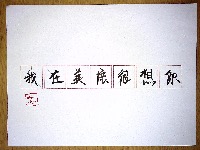 我在美展很想你